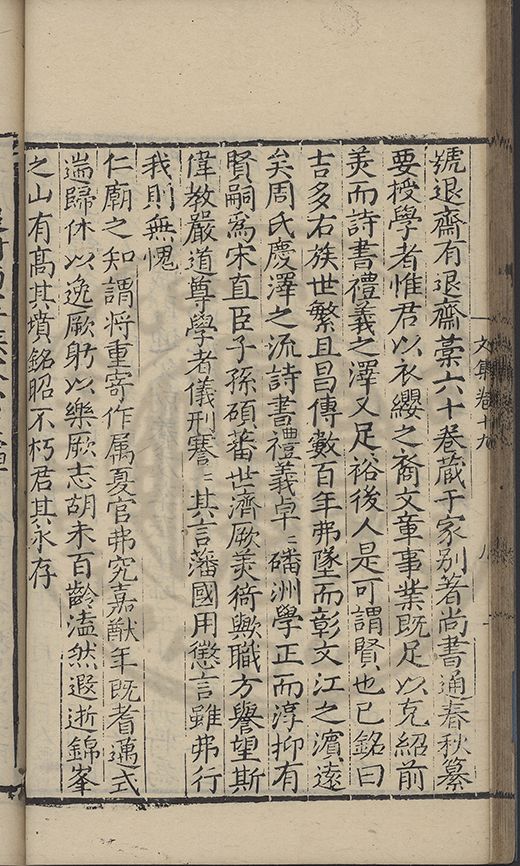 號退齋有退齋藁六十巻蔵于家别著尚書通春秋纂
要授學者惟君以衣纓之裔文章事業既足以克紹前
羙而詩書禮義之澤又足裕後人是可謂賢也已銘曰
吉多右族世繁且昌傳數百年弗墜而彰文江之濵遠
矣周氏慶澤之流詩書禮義卓〻磻洲學正而淳抑有
賢嗣爲宋直臣子孫碩蕃世濟厥羙猗歟職方譽望斯
偉教嚴道尊學者儀刑謇〻其言藩國用懲言雖弗行
我則無愧
仁廟之知謂将重寄作属夏官弗究嘉猷年既耆邁式
遄歸休以逸厥躬以樂厥志胡未百齡溘然遐逝錦峯
之山有髙其墳銘昭不朽君其永存
文集卷十九
八